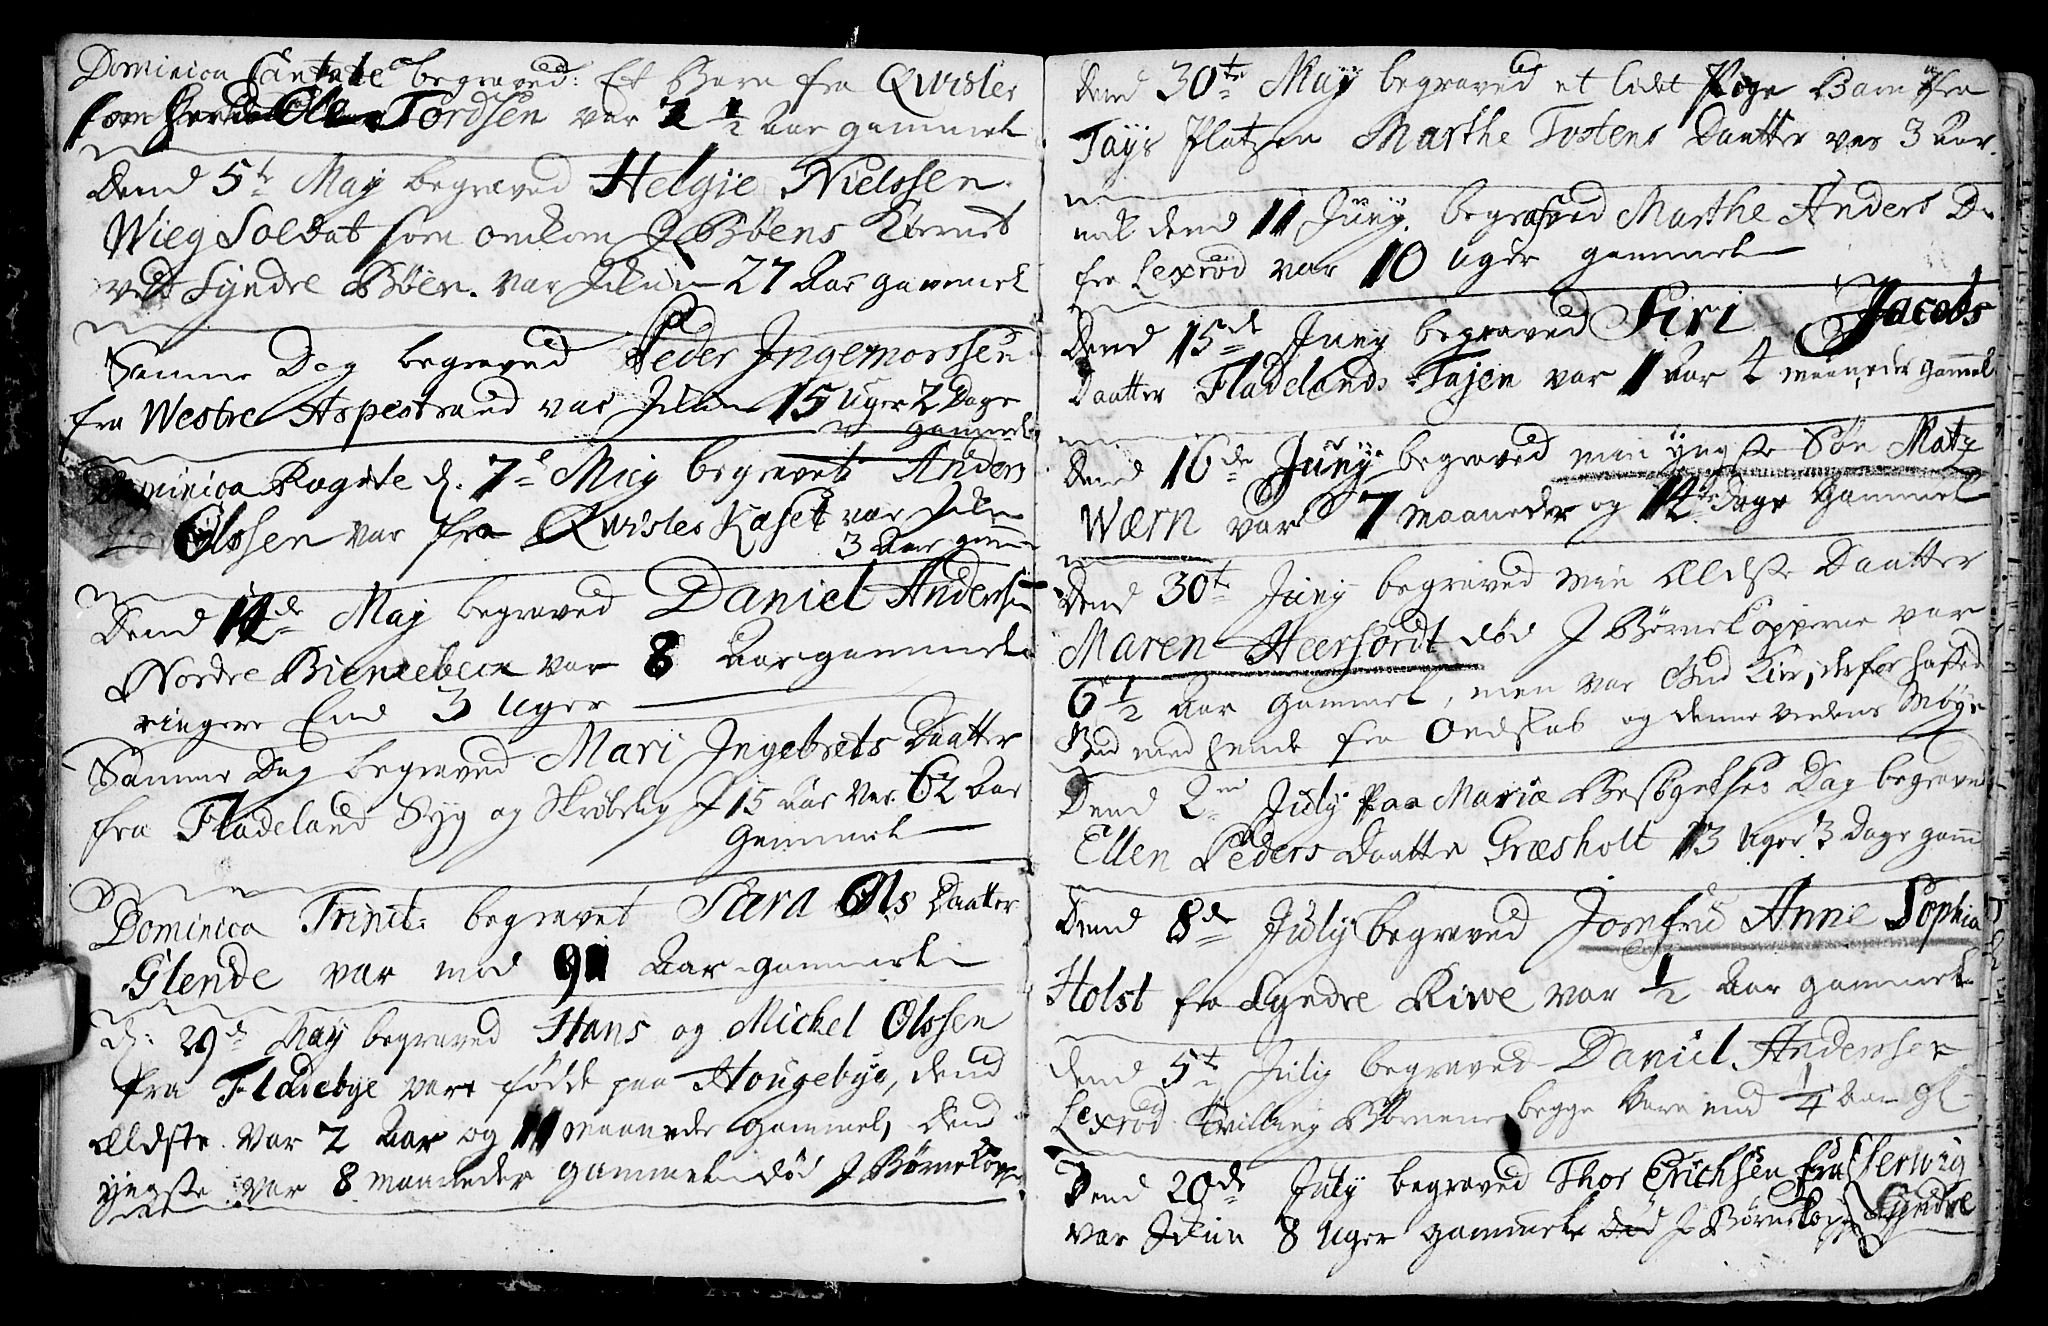 Dominica Cantate begraved: Et Barn fra Qvisler
som heed Ole Tordsen var 2 1/2 Aar gammel
Dend 5te May begraved Helgie Nielssen
Wieg Soldat som omkom J Böens Tiernet
ved Syndre Böen. var 27 Aar gammel
Samme Dag begraved Peder Ingemorssen
fra Westre Aspestrand var 15 Uger 2 Dage
gammel
Dominica Rogate d. 7de May begravet Anders
Olssen var fra Qvisler Kaset var
3 Aar gamm
Dend 14de May begraved Daniel Anderssen
Nordre Bienrebech var 8 Aar gammel
ringere End 3 Uger
Samme Dag begraved Mari Ingebrets Daatter
fra Fladeland Syg og Skröbelig J 15 Aar Var 62 Aar
Gammel
Dominica Trinit: begravet Sara Ols Daatter
Glende var mod 91 Aar gammel
d: 29de May begraved Hans og Michel Olssen
fra Fladebye vare födde paa Hougebye, dend
Ældste Var 2 Aar og 11 maaneder gammel, Dend
yngste var 8 maaneder gammel död J Börnekopp
Dend 30te May begraved et lidet Pige Barn fra
Tays Platzen Marthe Tostens Daatter var 3 Aar.
dend 11 Juny. begraved Marthe Anders D
fra Lexröd var 10 Uger gammel
Dend 15de Juny begraved Siri Jacobs
Daatter Fladelands Tajen var 1 Aar 4 maaneder gammel
Dend 16de Juny begraved min yngste Sön Matz
Wærn var 7 maaneder og 14 dage gammel
Dend 30te Juny begraved min Ældste Daatter
Maren Heerfordt död J Börnekopperne var
6 1/2 Aar gammel, men var Gud Kier, derfor hasted
Gud med hende fra Ondskab og denne verdens Möye
Dend 2den July paa Mariæ Besögelses Dag begraved
Ellen Peders Daatter Græsholt 13 Uger 3 Dage gam
Dend 8de July begraved Jomfrü Anne Sophia
Holst fra Syndre Riwe var 1/2 Aar gammel
Dend 5te July begraved Daniel Anderssen
Lexröd Tvilling Börnene begge Var end 1/4 Aar gl
Dend 20de July begraved Thor Erichsen fra Herwig
Syndre
var 8 Uger gammel död J Börnekopp